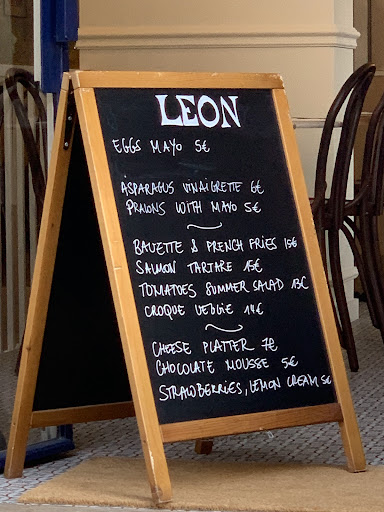 LEON
EGGS MAYO 5€
ASPARAGUS VINAIGRETTE 6€
PRAWNS WITH MAYO 5€
BAVETTE & FRENCH FRIES 15€
SALMON TARTARE 15€
TOMATOES SUMMER SALAD 13€
CROQUE VEGGIE 14€
CHEESE PLATTER 7€
CHOCOLATE MOUSSE 5€
STRAWBERRIES, LEMON CREAM 5€